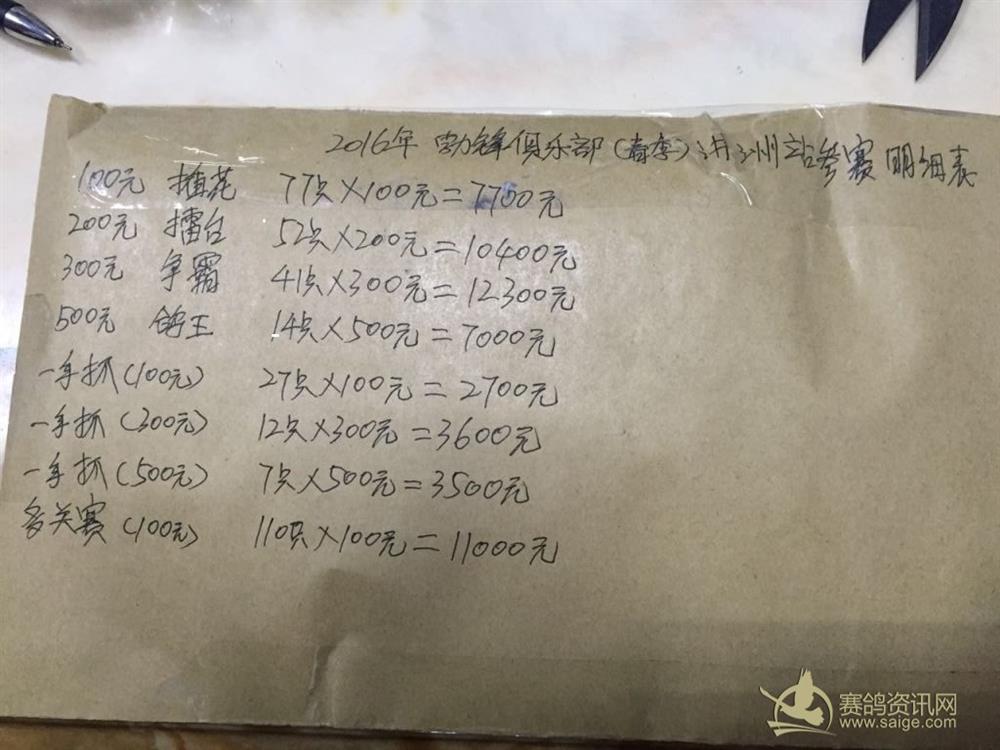 2016年 勁锋俱乐部(春季)涿州站参赛明细表
100元 插花 77只×100元=7700元
200元 擂台 52只×200元=10400元
300元 争霸 41只×300元=12300元
500元 鸽王 14只×500元=7000元
一手抓(100元) 27只×100元=2700元
一手抓(300元) 12只×300元=3600元
一手抓(500元) 7只×500元=3500元
多关赛(100元) 110只×100元=11000元
赛鸽资讯网
www.saige.com